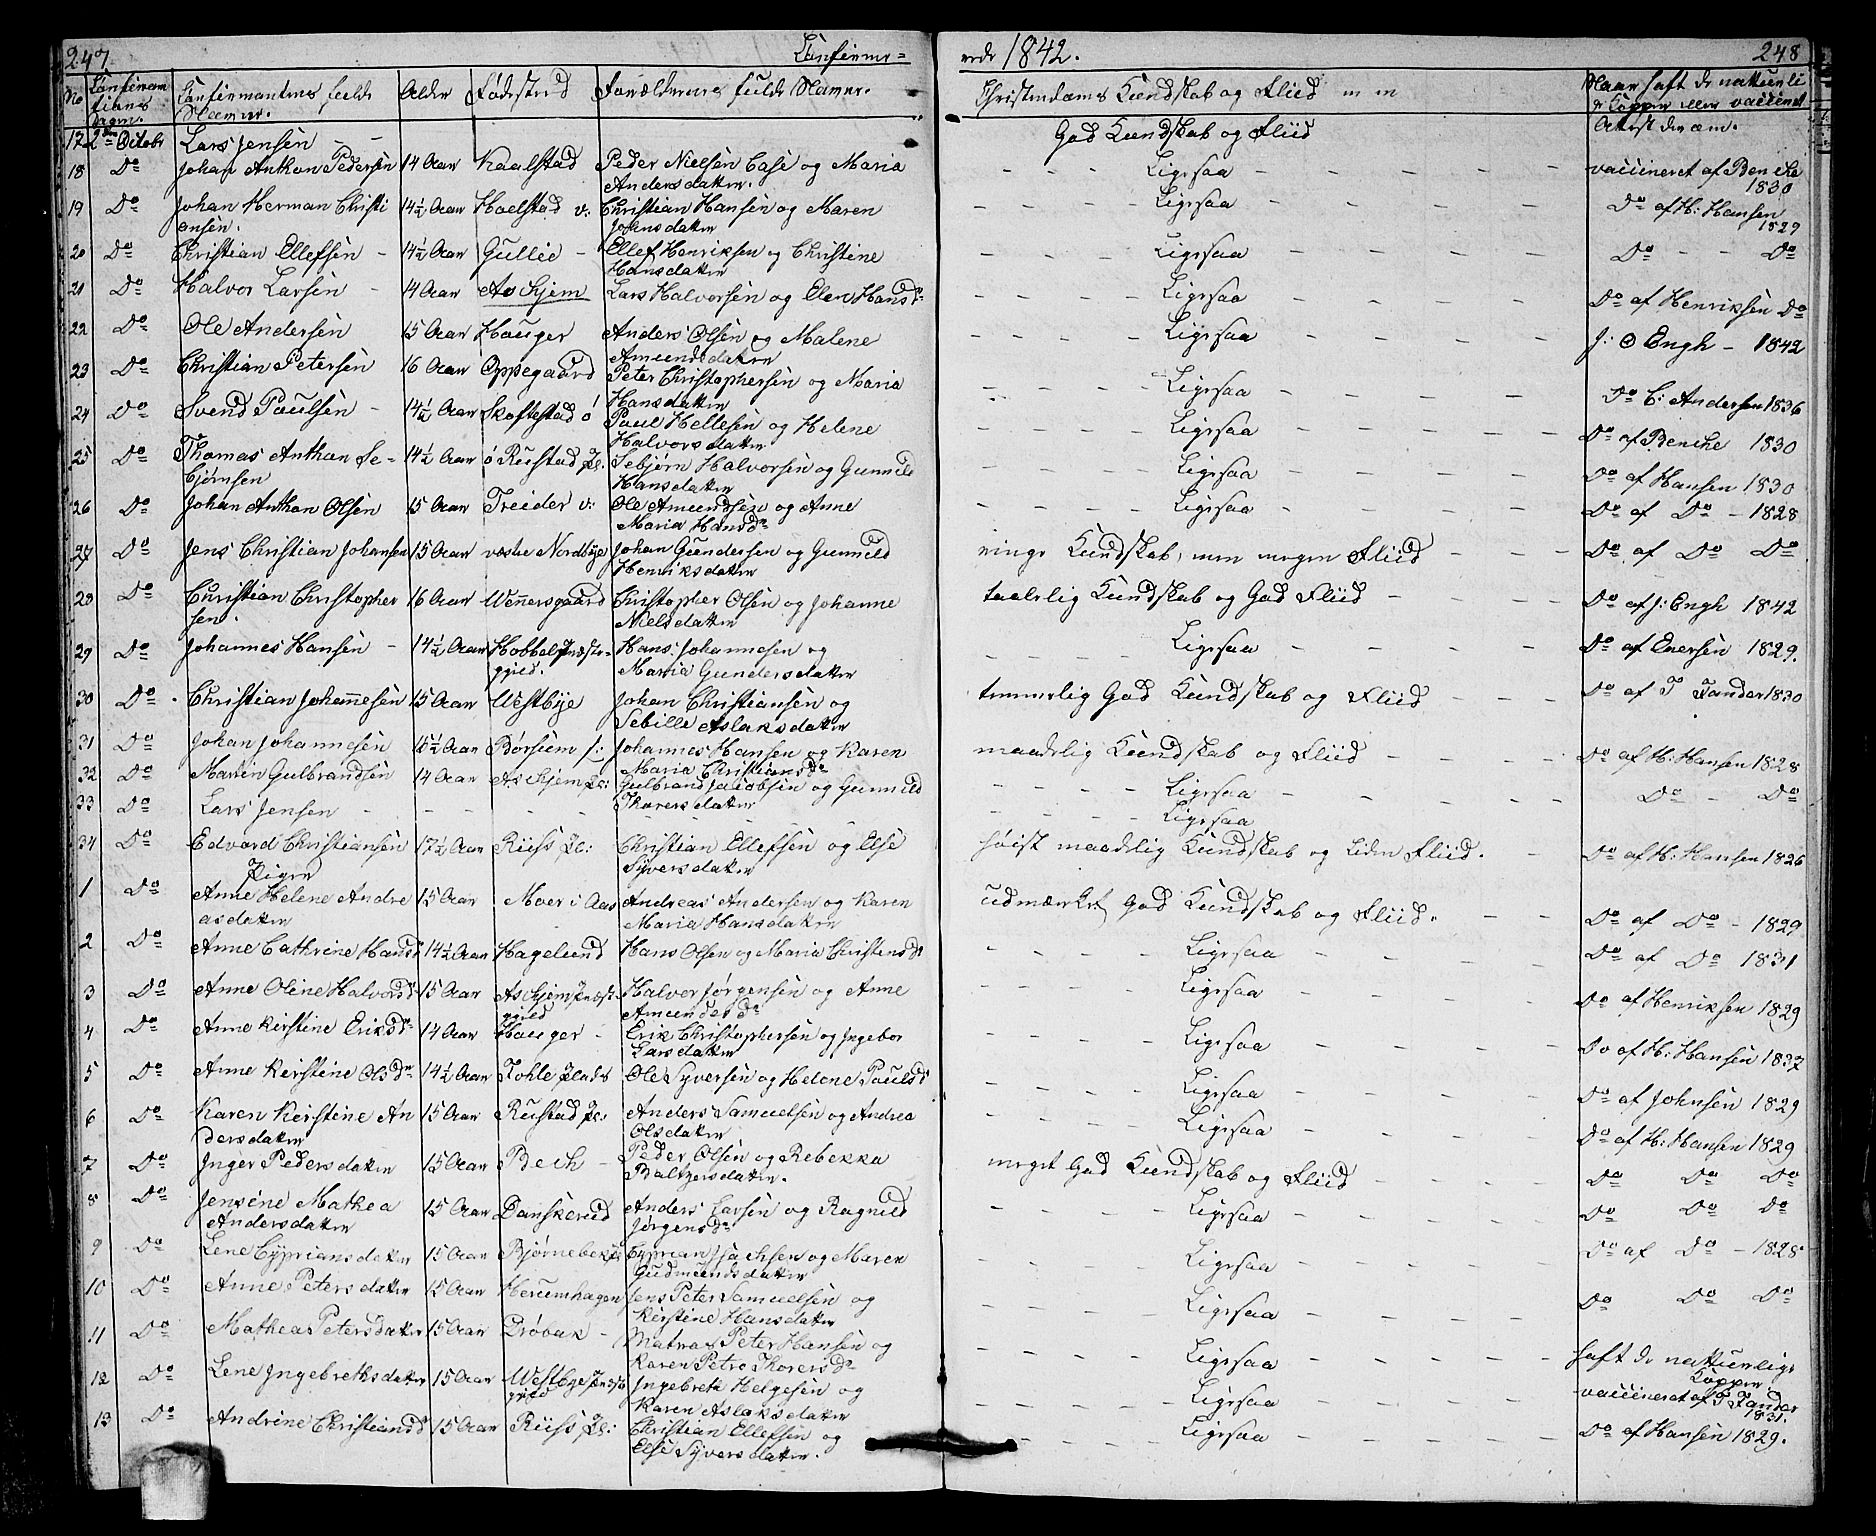 247. Confirme=
rede 1842. 248
No Confirma tions Dagen. Confirmantens fulde Navne. Alder Fødested Forældrenes fulde Navne. Christendoms Kundskab og Fliid Naar haft de naturlige Kopper eller vaccineret
Attest derom.
17 2den Octobr Lars Jensen – God Kundskab og Fliid
18 Do Johan Anthon Pedersen 14 Aar Kaalstad Peder Nielsen Case og Maria Andersdatter. Ligesaa vaccineret af Benche 1830
19 Do Johan Herman Christi ansen. 14½ Aar Kaelstad v: Christian Hansen og Maren Johnsdatter Ligesaa Do af H: Hansen 1829
20 Do Christian Ellefsen – 14½ Aar Gullie – Ellef Henriksen og Christine Hansdatter Ligesaa Do – – Do
21 Do Halvor Larsen – 14 Aar As Skjem Lars Halvorsen og Elen Hansdr Ligesaa Do af Henriksen Do
22 Do Ole Andersen 15 Aar Hauger Anders Olsen og Malene Amundsdatter Ligesaa J: O Engh – 1842
23 Do Christian Petersen 16 Aar Oppegaard Peter Christophersen og Maria Hansdatter Ligesaa Do C: Andersen 1836
24 Do Svend Paulsen – 14½ Aar Skoftestad ó Paul Hellesen og Helene Halvorsdatter Ligesaa Do af Benche 1830
25 Do Thomas Anthon Se= bjørnsen 14½ Aar ó Rustad Pl: Sebjørn Halvorsen og Gunnild Hansdatter Ligesaa Do af Hansen 1830
26 Do Johan Anthon Olsen 15 Aar Treider v: Ole Amundsen og Anne Maria Hansdr Ligesaa Do af Do – 1828
27 Do Jens Christian Johansen 15 Aar vestre Nordbye Johan Gundersen og Gunnild Henriksdatter ringe Kundskab, men megen Fliid Do af Do Do
28 Do Christian Christopher sen. 16 Aar Wennersgaard Christopher Olsen og Johanne Nielsdatter taalelig Kundskab og God Fliid Do af J: Engh 1842
29 Do Johannes Hansen – 14½ Aar Hobbel Præste= gjeld. Hans Johannesen og Maria Gundersdatter Ligesaa Do af Enersen 1829.
30 Do Christian Johannesen 15 Aar Westbye Johan Christiansen og Sebille Aslaksdatter temmelig God Kundskab og Fliid Do af T Tandor 1830
31 Do Johan Johannesen 15½ Aar Børsum s: Johannes Hansen og Karen Maria Christiansdr maadelig Kundskab og Fliid Do af H: Hansen 1828
32 Do Martin Gulbrandsen 14 Aar As Skjem Pl: Gulbrand Jacobsen og Gunnild Thoresdatter Ligesaa Do – Do
33 Do Lars Jensen – Ligesaa
34 Do Edvard Christiansen 17½ Aar Riiss Pl: Christian Ellefsen og Else Syversdatter høist maadelig Kundskab og liden Fliid. Do af H: Hansen 1826
Piger
1 Do Anne Helene Andre asdatter 15 Aar Moer i Aas Andreas Andersen og Karen Maria Hansdatter udmærket God Kundskab og Fliid. Do af Do – 1829
2 Do Anne Cathrine Hansdr 14½ Aar Hagelund Hans Olsen og Maria Christensdr Ligesaa Do af Do 1831
3 Do Anne Oline Halvorsdr 15 Aar As Skjem Præste gjeld Halvor Jørgensen og Anne Amundsdr Ligesaa Do af Henriksen 1829
4 Do Anne Kirstine Eriksdr 14 Aar Hauger – Erik Christophersen og Ingebor Larsdatter Ligesaa Do af H: Hansen 1837
5 Do Anne Kirstine Olsdr 14½ Aar Tohle Plads Ole Syversen og Helene Paulsdr Ligesaa Do af Johnsen 1829
6 Do Karen Kirstine An dersdatter 15 Aar Rustad Pl: Anders Samuelsen og Andrea Olsdatter Ligesaa Do af H: Hansen 1829
7 Do Inger Pedersdatter 15 Aar Bech – Peder Olsen og Rebekka Baltzersdatter. meget God Kundskab og Fliid Do Do Do
8 Do Jensine Mathea Andersdatter 15 Aar Danskerud Anders Larsen og Ragnild Jørgensdr Ligesaa Do Do Do
9 Do Lene Cypriansdatter 15 Aar Bjørnebek Cyprian Isachsen og Maren Gudmundsdatter Ligesaa Do af Do – 1828
10 Do Anne Petersdatter 15 Aar Herumhagen Jens Peter Samuelsen og Kirstine Hansdatter Ligesaa Do Do Do
11 Do Mathea Petersdatter 15 Aar Drøbak – Matros Peter Hansen og Karen Petro Thoresdr Ligesaa haft de naturlige Kopper
12 Do Lene Ingebrethsdatter 15 Aar Westbye Præste gjeld Ingebreth Helgesen og Karen Aslaksdatter Ligesaa vaccineret af T Tandor 1831.
13 Do Andrine Christiansdr 15 Aar Riiss Pl: Christian Ellefsen og Else Syversdatter. Ligesaa Do af Hansen 1829.